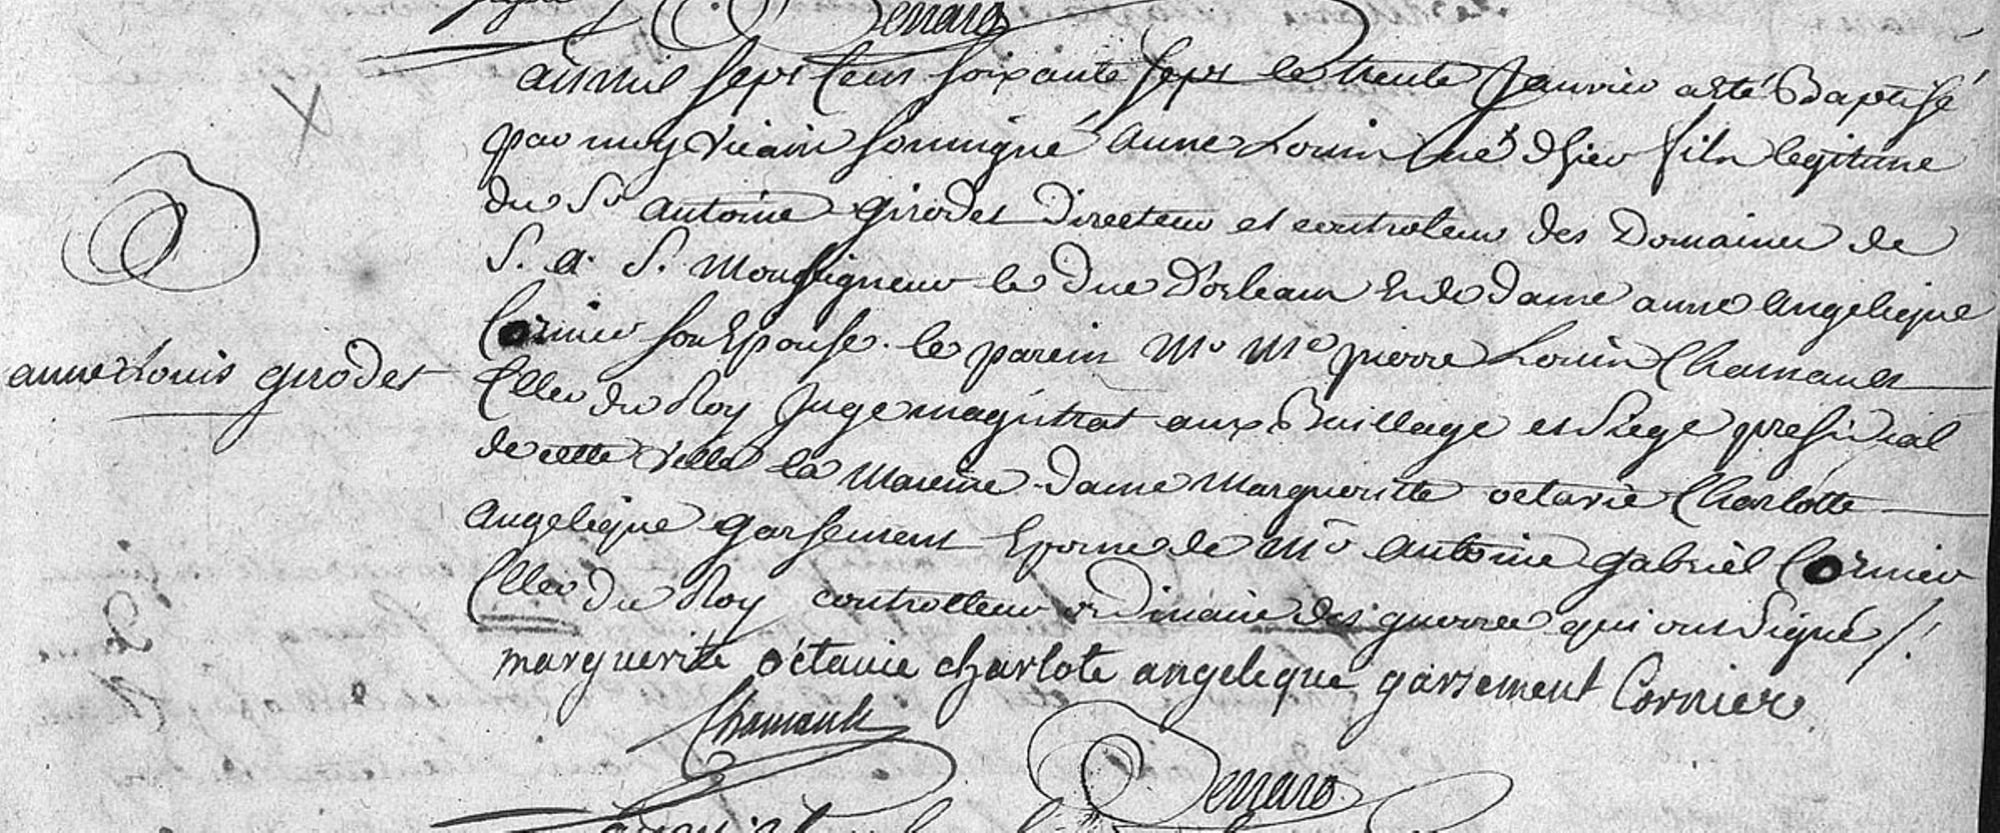 Berrard
an mil sept cent soixante sept le trente Janvier a eté Baptisé
par moy vicaire soussigné anne Louis né d'hier fils legitime
du Sr antoine girodet Directeur et controleur des Domaines de
S. A. S. Monseigneur le Duc D'orleans et de dame anne Angelique
Cornier son Epouse. le parein Mr Me pierre Louis Chamault
anne Louis girodet
Cller du Roy Juge magistrat aux Baillage et Siege presidial
de cette ville la Mareine Dame Margueritte octavie Charlotte
Angelique garsement Epouse de Mr Antoine gabriel Cornier
Cller du Roy controlleur ordinaire des guerres qui ont Signé /.
marguerite octavie charlote angelique garsement Cornier
Chamault
Berrard